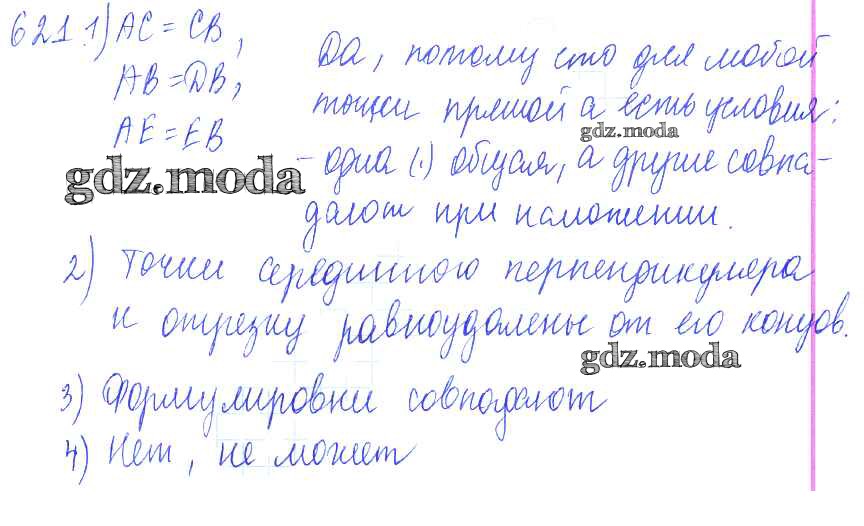 621. 1) AC = CB,
AB = DB,
AE = EB
Да, потому что для любой
точки прямой a есть условия:
gdz.moda
- одна (·) общая, а другие совпа-
gdz.moda
дают при наложении.
2) Точки серединного перпендикуляра
к отрезку равноудалены от его концов.
gdz.moda
3) Формулировки совпадают
4) Нет, не может